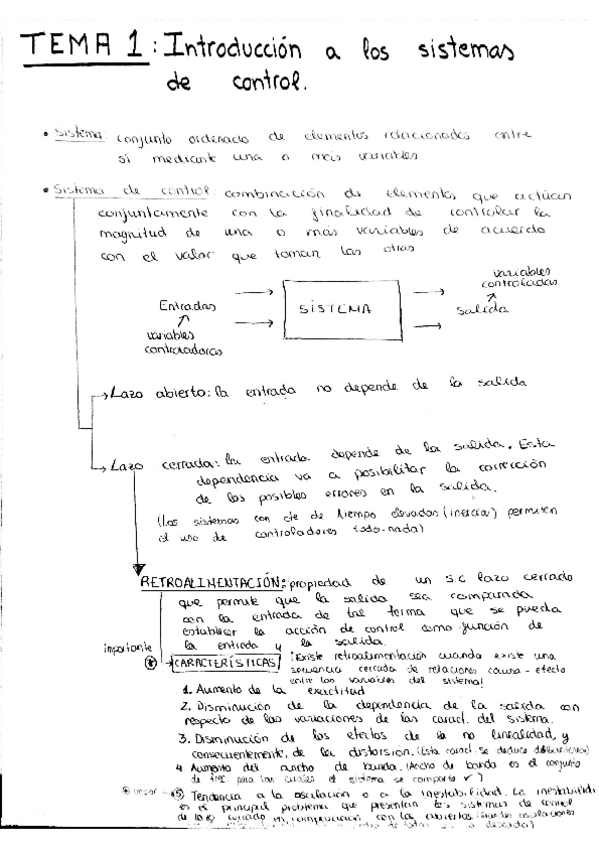 TEMA 1: Introducción a los sistemas
de control.
• Sistema: conjunto ordenado de elementos relacionados entre
sí mediante una o más variables
• Sistema de control: combinación de elementos que actúan
conjuntamente con la finalidad de controlar la
magnitud de una o más variables de acuerdo
con el valor que toman las otras
variables
controladas
Entradas
SISTEMA
salida
variables
controladoras
Lazo abierto: la entrada no depende de la salida
Lazo cerrado: la entrada depende de la salida. Esta
dependencia va a posibilitar la corrección
de los posibles errores en la salida.
(Los sistemas con cte de tiempo elevados (inercia) permiten
el uso de controladores todo-nada)
RETROALIMENTACIÓN: propiedad de un s.c lazo cerrado
que permite que la salida sea comparada
con la entrada de tal forma que se pueda
establecer la acción de control como función de
la entrada y la salida.
importante
CARACTERÍSTICAS
¡Existe retroalimentación cuando existe una
secuencia cerrada de relaciones causa-efecto
entre las variables del sistema!
1. Aumento de la exactitud
2. Disminución de la dependencia de la salida con
respecto de las variaciones de las caract. del sistema.
3. Disminución de los efectos de la no linealidad, y
consecuentemente, de la distorsión. (Esta caract. se deduce
4. Aumento del ancho de banda. (Ancho de banda es el conjunto
de para las cuales el sistema se comporta ✓)
impor
5) Tendencia a la oscilación o a la inestabilidad. La inestabilidad
es el principal problema que presentan los sistemas de control
de lazo cerrado en comparación con los abiertos